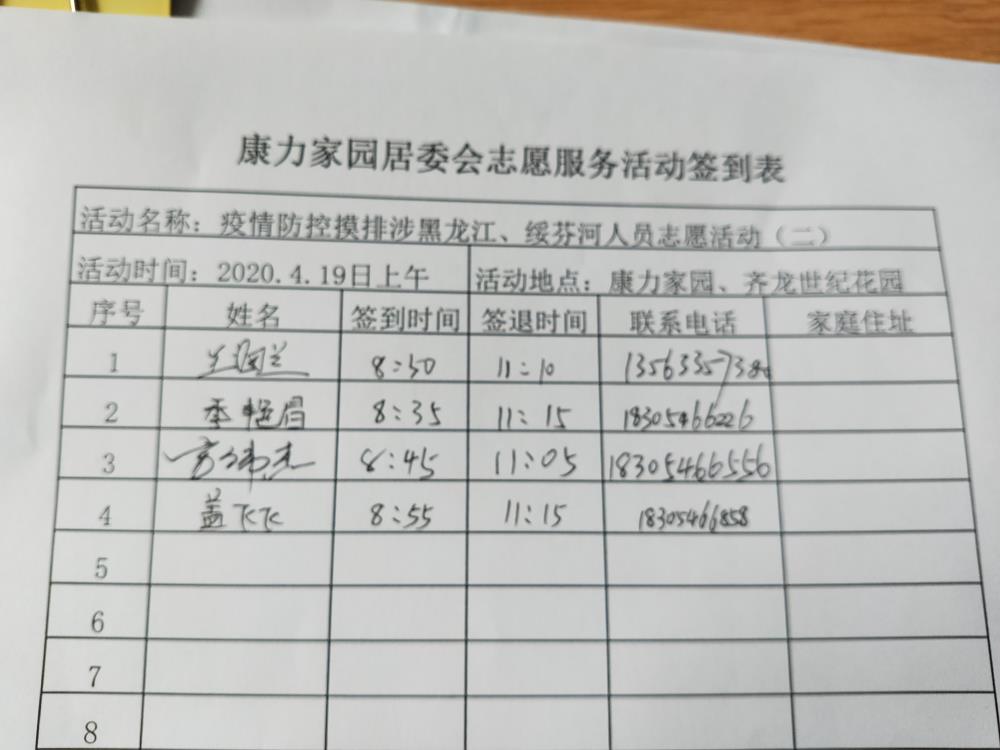 康力家园居委会志愿服务活动签到表
活动名称：疫情防控摸排涉黑龙江、绥芬河人员志愿活动（二）
活动时间：2020.4.19日上午 活动地点：康力家园、齐龙世纪花园
序号 姓名 签到时间 签退时间 联系电话 家庭住址
1 兰 8:30 11:10
2 季艳眉 8:35 11:15 18305466226
3 8:45 11:05 18305466556
4 盖飞飞 8:55 11:15 18305466858
5
6
7
8